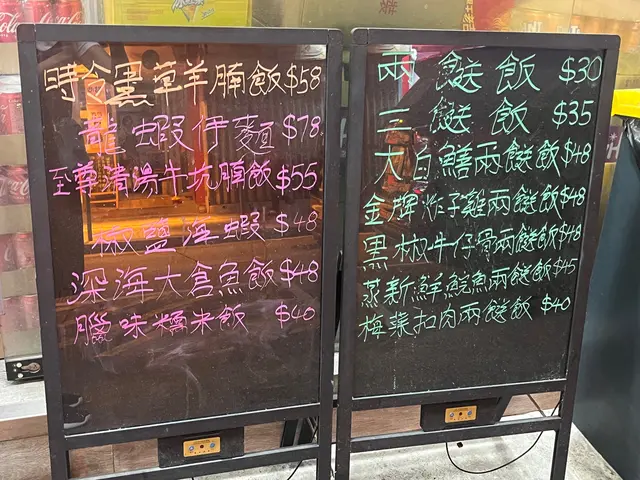 時令黑草羊腩飯 $58
龍蝦伊麵 $78
至尊清湯牛坑腩飯 $55
椒鹽海蝦 $48
深海大倉魚飯 $48
臘味糯米飯 $40
兩餸飯 $30
三餸飯 $35
大白鱔兩餸飯 $48
金牌炸子雞兩餸飯 $48
黑椒牛仔骨兩餸飯 $48
蒸新鮮鯇魚兩餸飯 $45
梅菜扣肉兩餸飯 $40